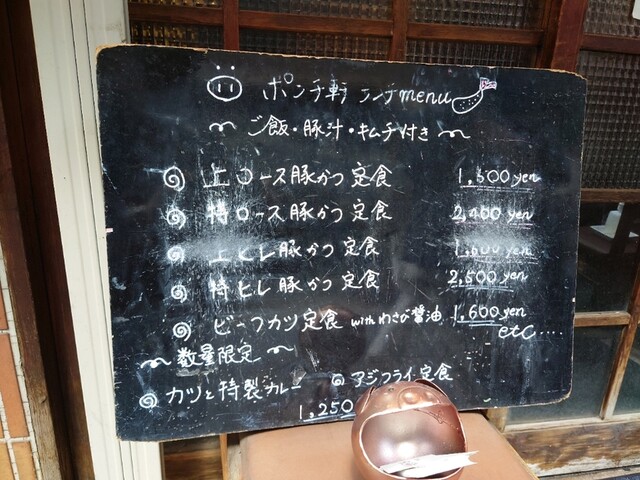 ポンチ軒 ランチmenu
ご飯・豚汁・キムチ付き
上ロース豚かつ定食 1,500yen
特ロース豚かつ定食 2,400yen
上ヒレ豚かつ定食 1,600yen
特ヒレ豚かつ定食 2,500yen
ビーフカツ定食 withわさび醤油 1,600yen
etc....
数量限定
カツと特製カレー アジフライ定食
1,250